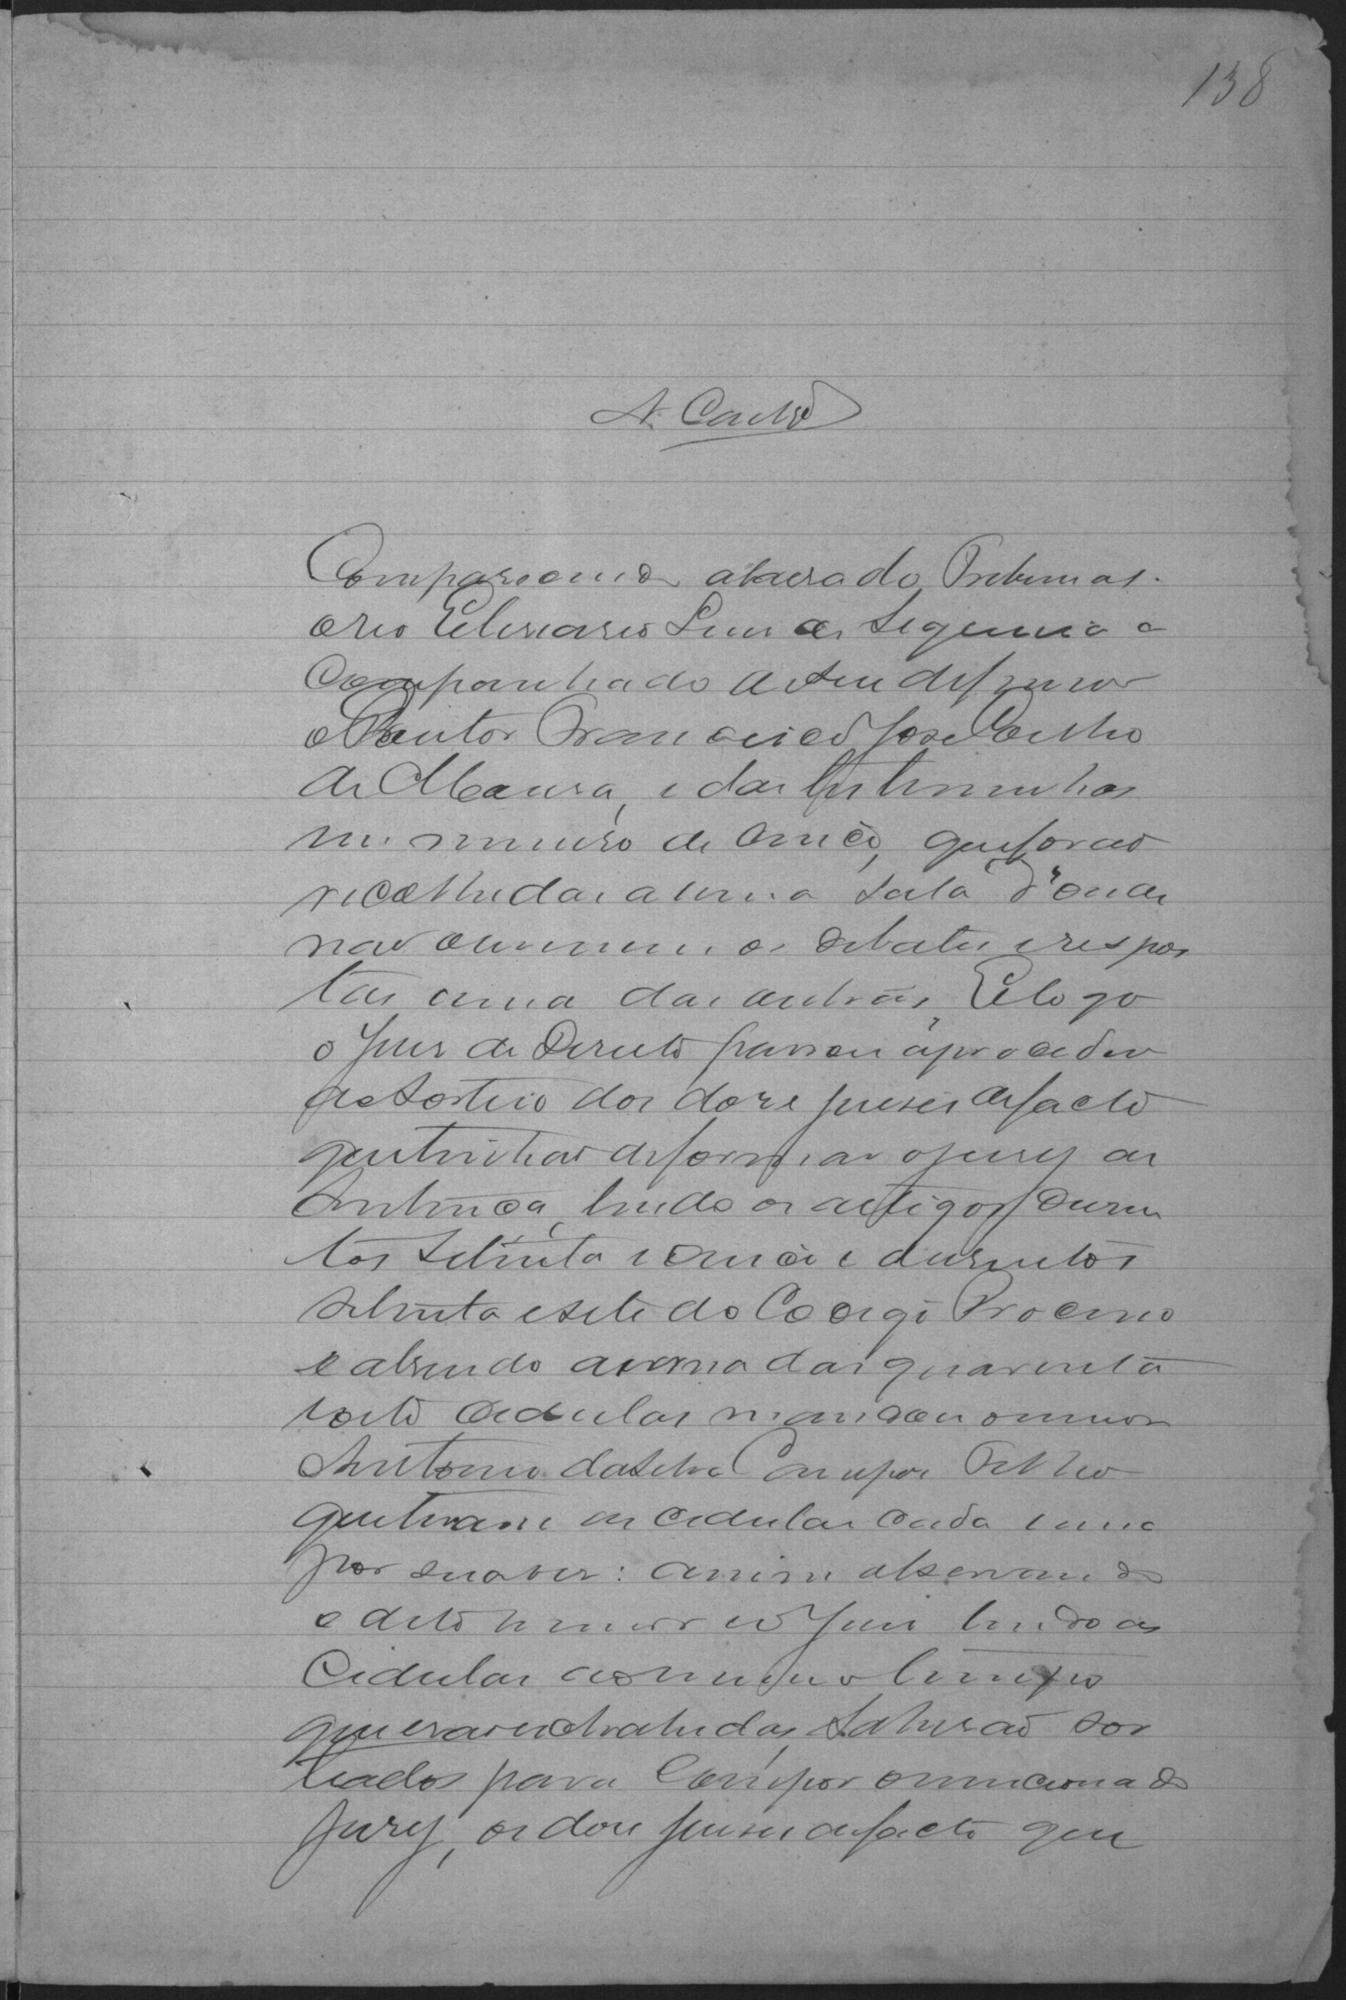 138
A. Coelho
Comparecendo a barra do Tribunal
o reo Eliziario Luiz de Siqueira a
companhado de seu defensor
o Doutor Francisco José Coelho
de Moura, e das testemunhas
em numero de cinco, que forão
recolhidas a uma sala d'onde
não ouvissem os debates e respos
tas uma das outras, E logo
o Juiz de Direito passou a proceder
ao sorteio dos doze juises de facto
que tinhão de formar o jury de
Sentença, lendo os artigos dusen
tos setenta e cinco e dusentos
setenta e sete do Codigo Processo
e abrindo a urna das quarenta
e oito cedulas mandou o menor
Antonio da Silva Campos Filho
que tirasse as cedulas cada uma
por sua vez: assim observando
o dito menor e o Juiz lendo as
Cedulas ao mesmo tempo
que erão extrahidas, sahirão sor
teados para compor o mencionado
Jury, os doze juises de facto que